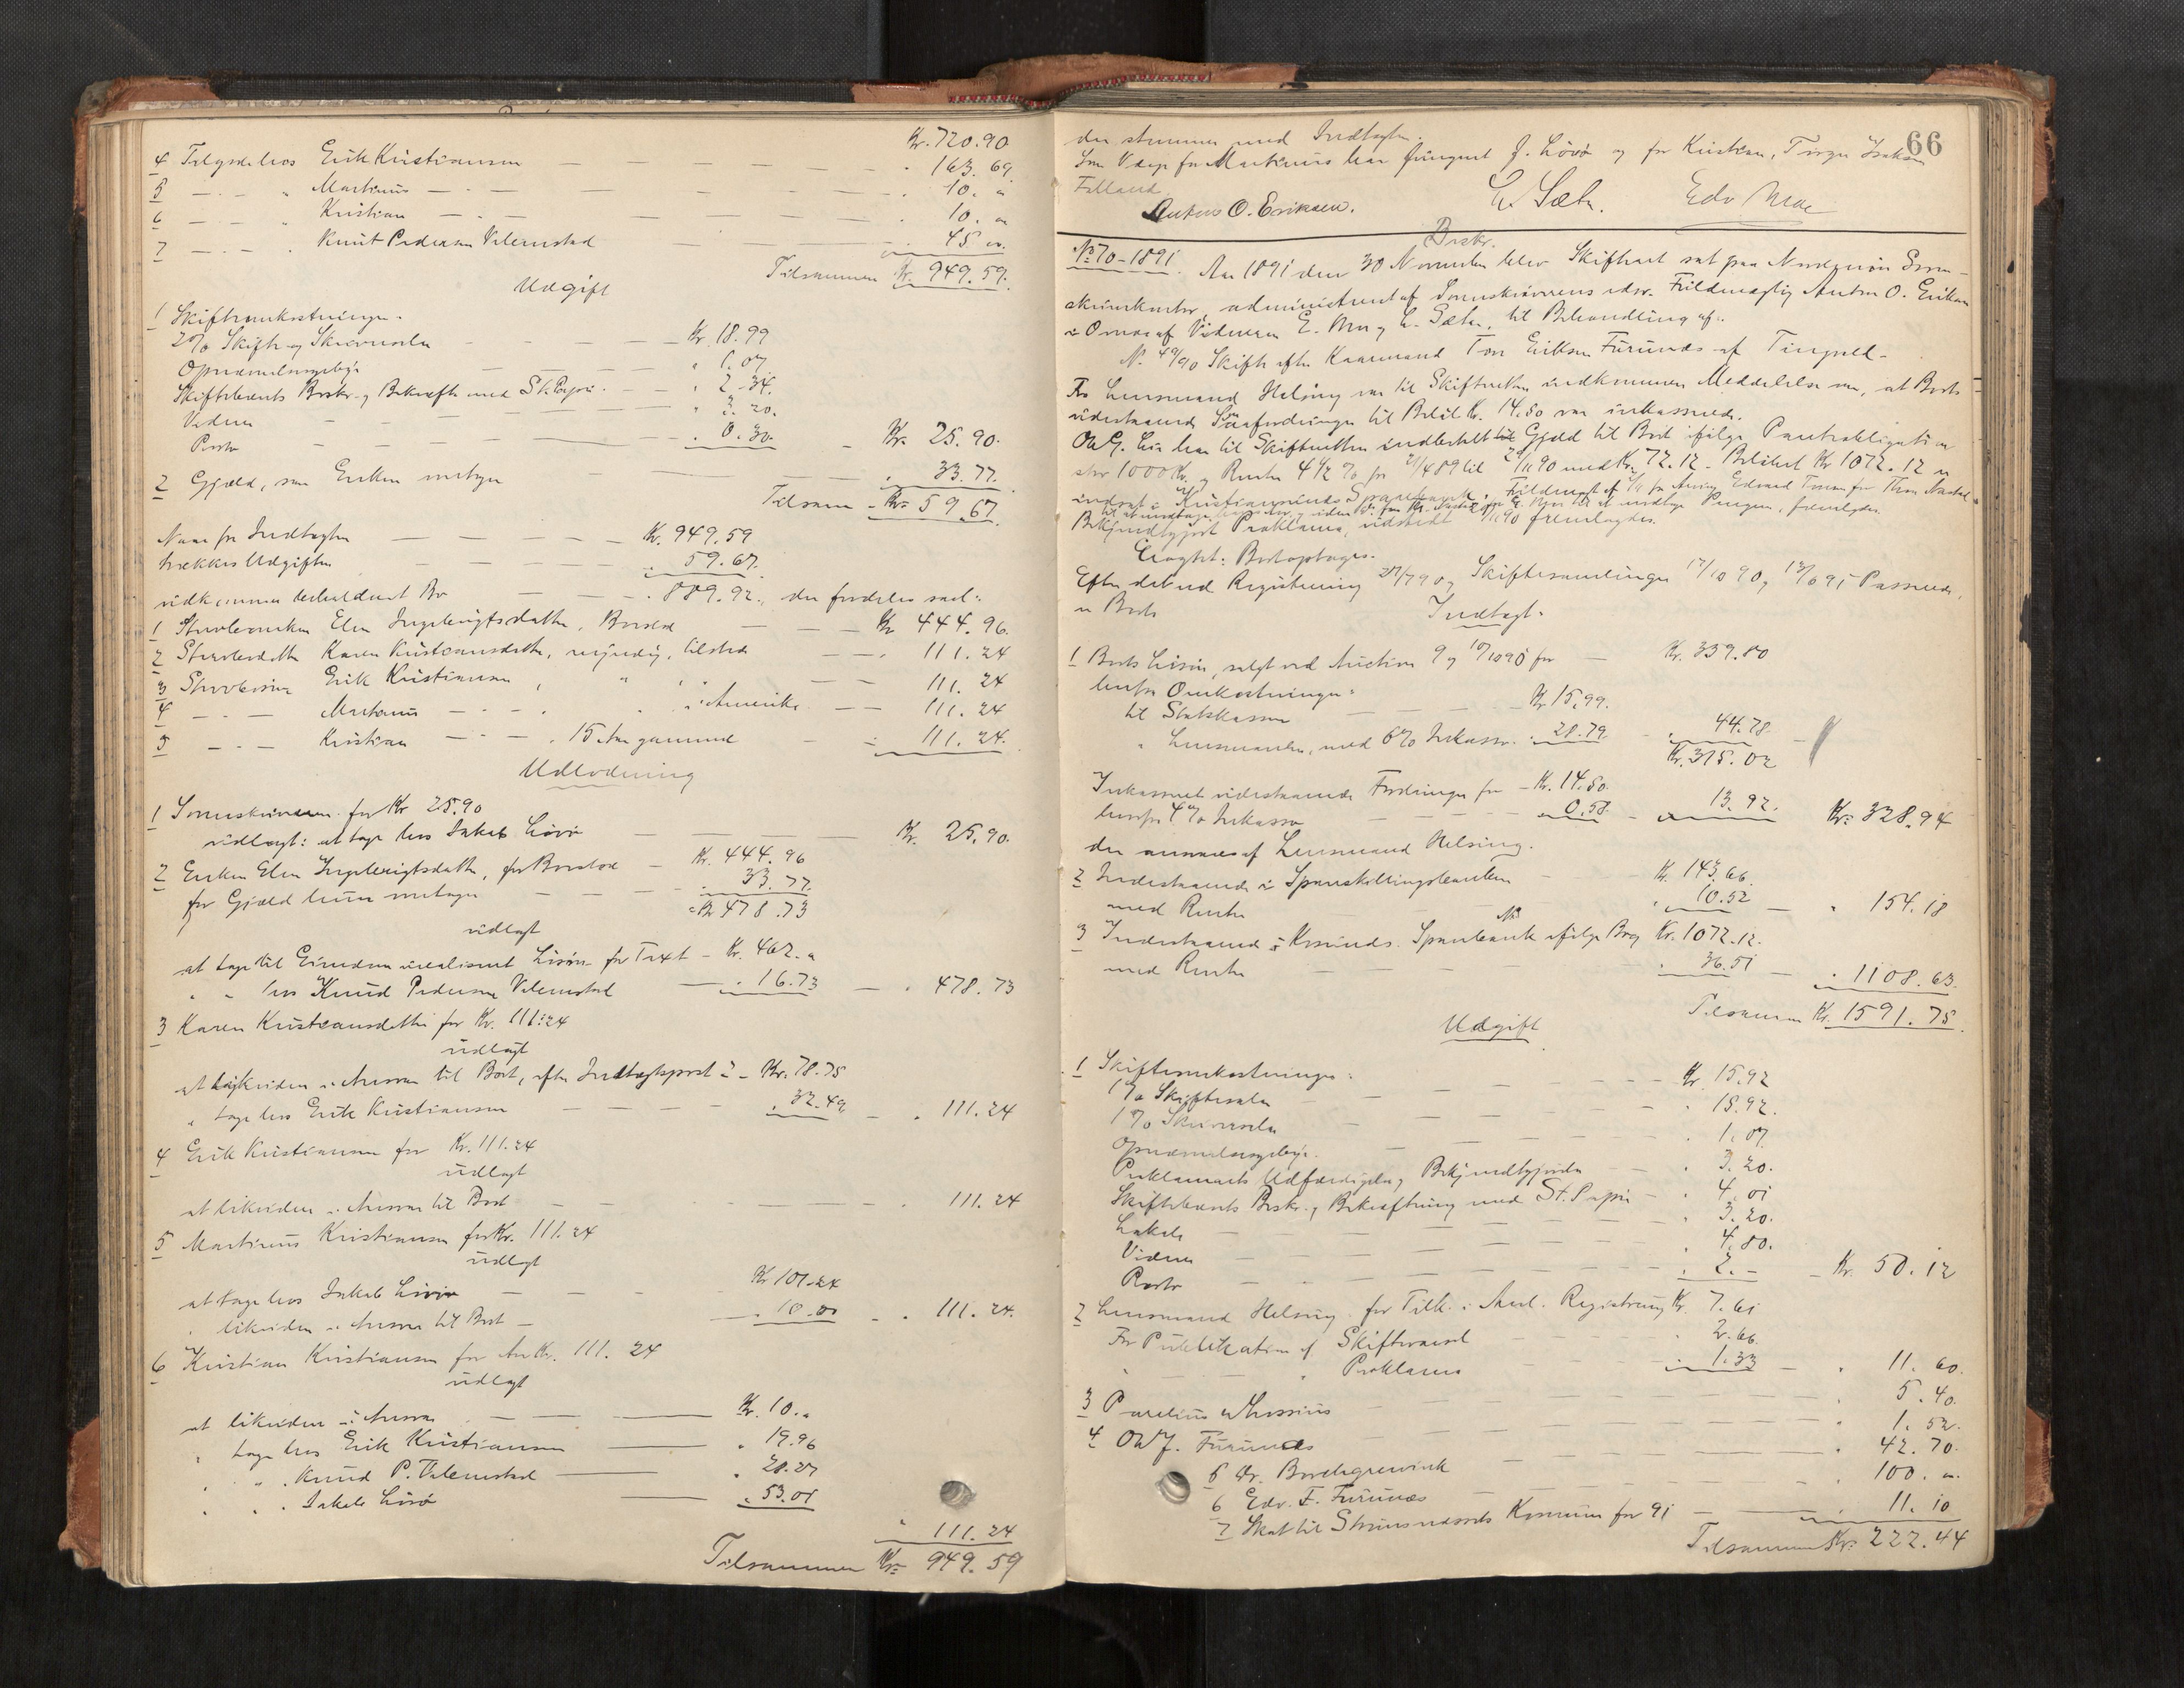 Kr. 720.90
4 Tilgode hos Erik Kristiansen — — — — " 163.69
5 — " — " Martinus — " — — " 10. "
6 — " — " Kristian — " — — " 10. "
7 — " — " Knut Pedersen — 45 "
Tilsammen Kr. 949.59.
Udgift
1 Skifteomkostninger.
2% Skifte og Skriversalær — Kr. 18.99
Opnævnelsesgebyr — " 1.07
Skiftebrevets Beskr. og Bekræft. med St. Papir — " 2.34.
Vidner — " 3.20.
Porto — " 0.30 — Kr. 25.90.
2 Gjæld, som Enken modtager — " 33.77.
Tilsam. Kr. 59.67.
Naar fra Indtægten — — — Kr. 949.59
trækkes Udgiften — — — " 59.67.
udkommer beholdent Bo — — " 889.92, der fordeles saal:
1 Stervboenken Elen Ingebrigtsdatter, Boeslod — Kr. 444.96.
2 Stervbodatter Karen Kristiansdatter, myndig, tilstede — — " 111.24
3 Stervbosøn Erik Kristiansen, " " — — 111.24
4 — " — Martinus — " — " " i Amerika — — 111.24
5 — " — Kristian — " — 15 Aar gammel — " 111.24.
Udlodning
1 Sorenskriveren for Kr. 25.90
udlagt: at tage hos Jakob Livø — — Kr. 25.90.
2 Enken Elen Ingebrigtsdatter, for Boeslod — Kr. 444.96
for Gjæld hun modtager — — " 33.77.
Kr 478.73
udlagt
at tage til Eiendom urealiseret Løsøre for Taxt — Kr. 462. "
" " hos Knud Pedersen — " 16.73 — " 478.73
3 Karen Kristiansdatter for Kr. 111.24
udlagt
at likviden i Ansvar til Boet, efter Indtægtspost 2 — Kr. 78.75
" tage hos Erik Kristiansen — — — " 32.49 — " 111.24
4 Erik Kristiansen for Kr. 111.24
udlagt
at likviden i Ansvar til Boet — — — — 111.24
5 Martinus Kristiansen for Kr. 111.24
udlagt
at tage hos Jakob Livø — Kr 101.24
" likviden i Ansvar til Boet — " 10.00 — " 111.24.
6 Kristian Kristiansen for Kr. 111.24
udlagt
at likviden i Ansvar — — Kr. 10. "
" tage hos Erik Kristiansen — " 19.96
" " " Knud P. — " 28.27
" " " Jakob Livø — " 53.01
" 111.24
Tilsammen Kr. 949.59
66
der stemmer med Indtægten.
Som Værge for Martinus har fungeret J. Livø og for Kristian,
Anton O. Eriksen. E. Sæter. Edv Moe
Beskr.
No 70-1891. Aar 1891 den 30 November blev Skifteret sat paa Nordmøre Soren-
skriverkontor, administreret af Sorenskriverens edsv. Fuldmægtig Anton O. Eriksen
i Overvær af Vidnerne E. Moe og E. Sæter, til Behandling af:
No. 49/90 Skifte efter Kaarmand Tore Eriksen Furunæs af Tingvold.
Fra Lensmand Helsing var til Skifteretten indkommen Meddelelse om, at Boets
udestaaende Smaafordringer til Beløb Kr. 14.50 var inkasserede.
har til Skifteretten indbetalt Gjæld til Boet ifølge Pantobligation
stor 1000 Kr. og Renter 4½ % fra 21/4 89 til 90 med Kr. 72.12. Beløbet Kr 1072.12 er
indsat i Kristianssunds Sparebank.
Bekjendtgjort Proklama, udstedt 90 fremlagdes.
Eragtet: Boet optages.
Efter derved Registrering 21/7 90, Skiftesamlinger 17/10 90 og Passerede,
er Boets
Indtægt.
1 Boets Løsøre, solgt ved Auction 9 og 10/10 90 for — Kr. 359.80
herfra Omkostninger:
til Statskassen — — Kr 15.99.
" Lensmanden, med 6% Inkasso. " 28.79 — " 44.78.
Kr. 315.02
Inkasseret udestaaende Fordringer for — Kr. 14.50.
herfra 4% Inkasso — — " 0.58. — " 13.92. Kr. 328.94
der ansvares af Lensmand Helsing.
2 Indestaaende i Sparskillingsbanken — Kr. 143.66.
med Renter — " 10.52 — " 154.18
3 Indestaaende i Krsunds. Sparebank ifølge Bog No Kr. 1072.12.
med Renter — — " 36.51 — " 1108.63.
Tilsammen Kr. 1591.75.
Udgift
1 Skifteomkostninger:
1% Skiftesalær — — Kr. 15.92
1% Skriversalær — — " 15.92.
Opnævnelsesgebyr. — — " 1.07
Proklamaets Udfærdigelse og Bekjendtgjørelse " 3.20.
Skiftebrevets Beskr. og Bekræftning med St. Papir — " 4.01
Lokale — — " 3.20.
Vidner — — " 4.80.
Porto — — " 2.— — Kr. 50.12
2 Lensmand Helsing for Tilk. i Anl. Registrering Kr. 7.61
For Publikation af Skiftevarsel " 2.66.
" " Proklama — " 1.33 — " 11.60.
3 — — " 5.40.
4 Furunæs — — " 1.52.
5 Dr. Borchgrevink — — " 42.70.
6 Edv. T. Furunæs — — " 100. "
7 Skat til Straumsnæsets Kommune for 91 — " 11.10
Tilsammen Kr. 222.44